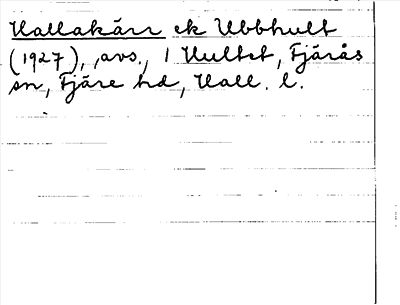 Hallakärr ek Ubbhult
(1927), avs., 1 Hultet, Fjärås
sn, Fjäre hd, Hall. l.